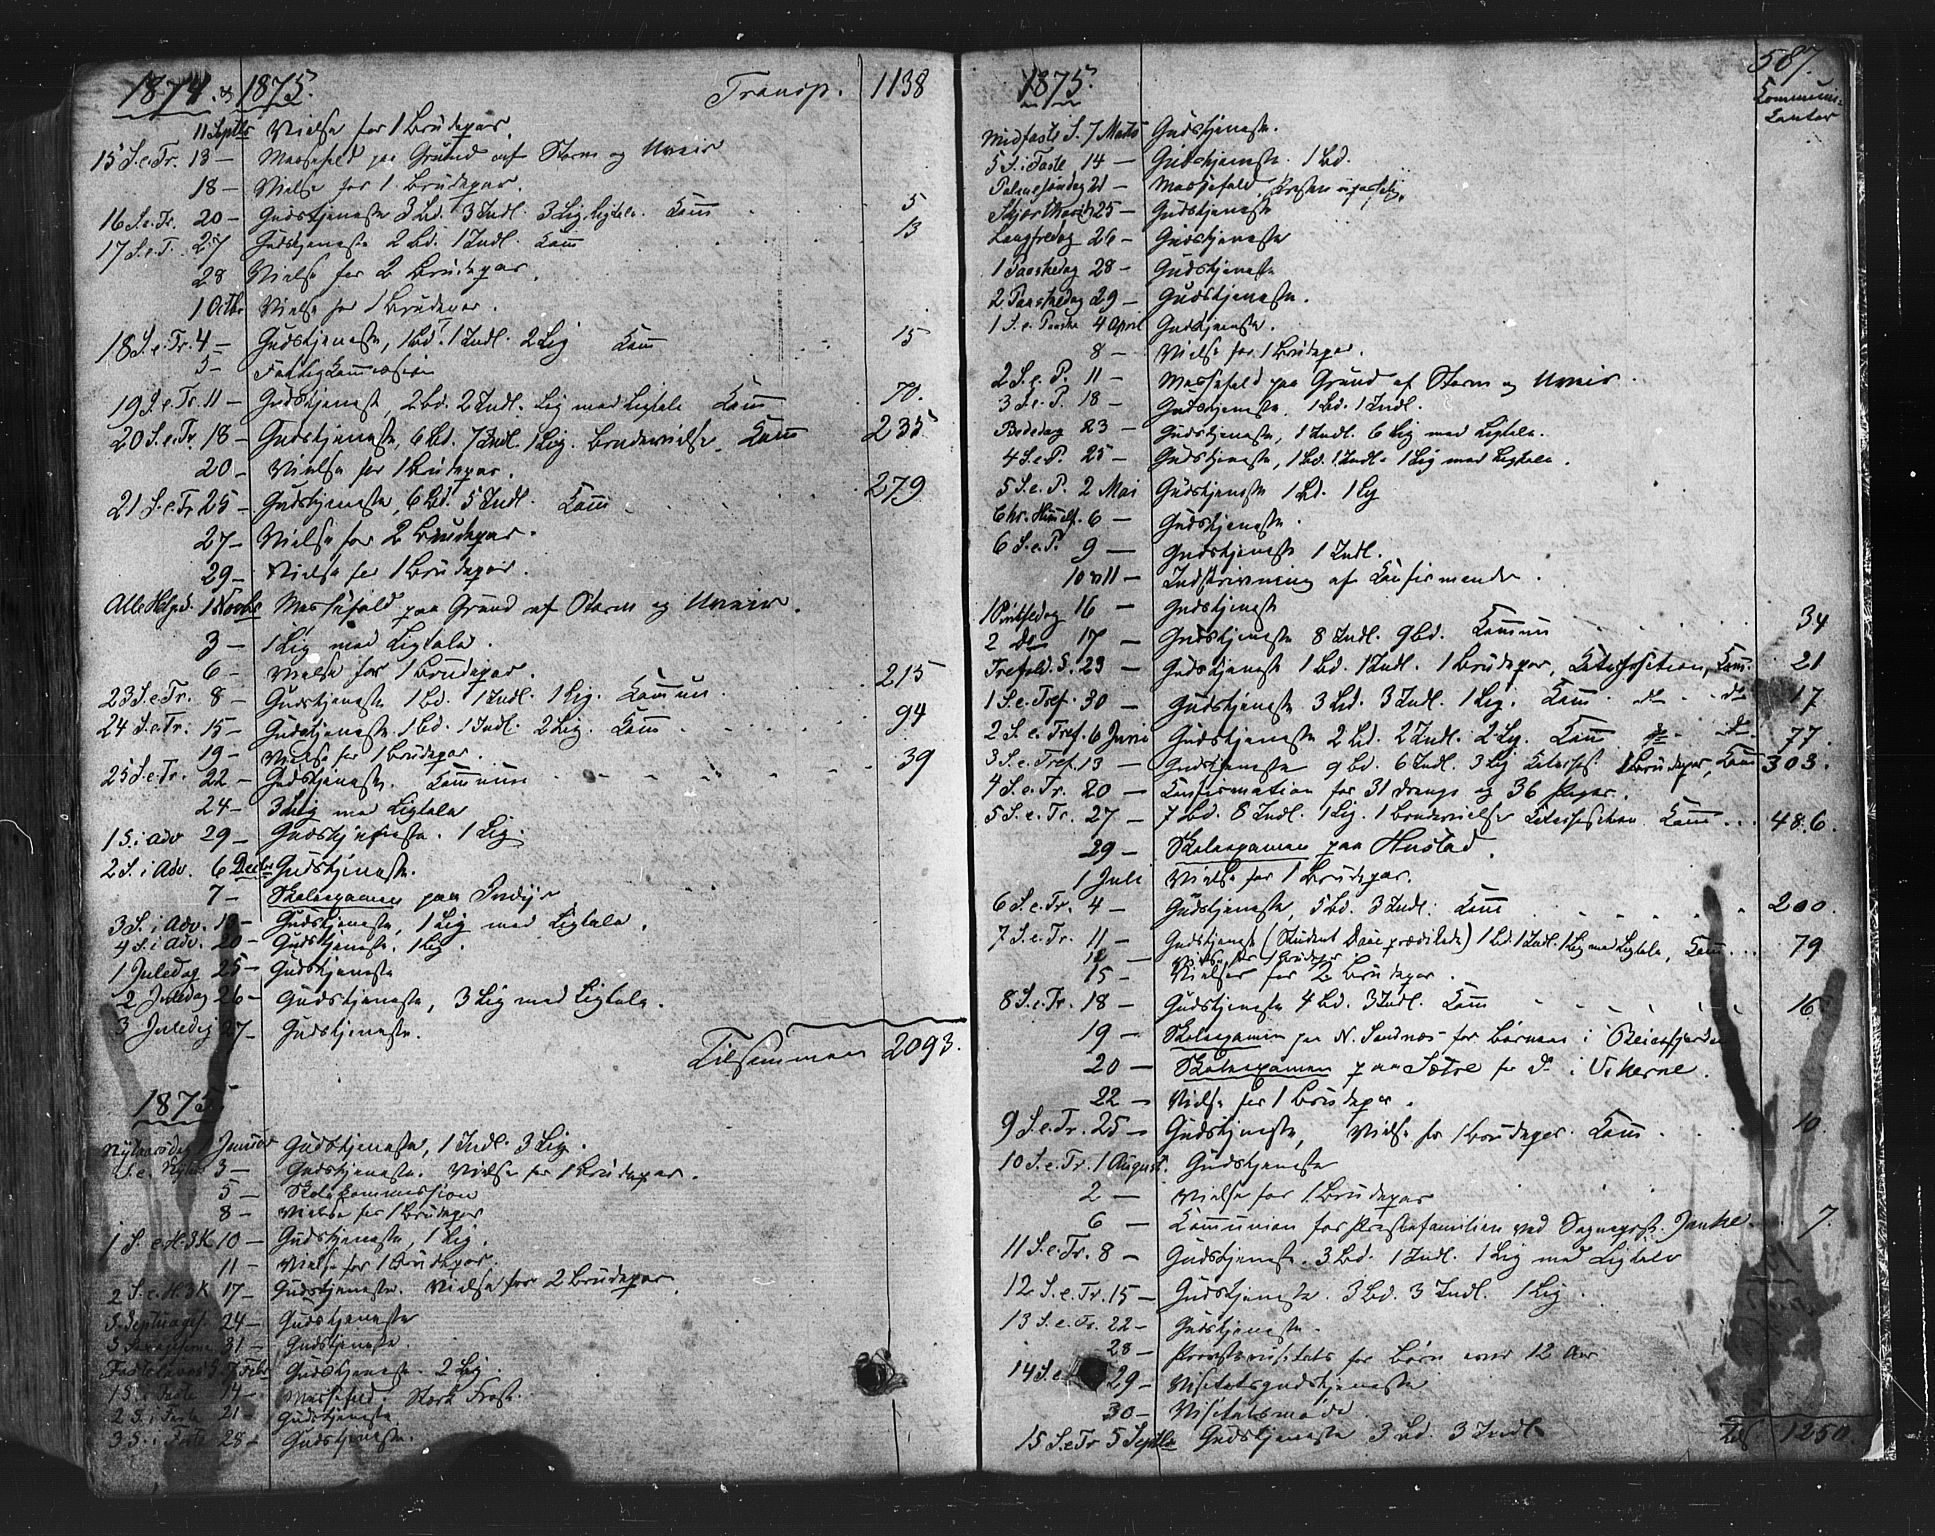 1874 & 1875. Transp. 1138
11 Septbr Vielse for 1 Brudepar.
15 S.e.Tr. 13 — Messefald paa Grund af Storm og Uveir
18 — Vielse for 1 Brudepar.
16 S.e.Tr. 20 — Gudstjeneste 3 Bd. 3 Indl. 3 Lig. Ligtale. Com 5
17 S.e.T. 27 Gudstjeneste 2 Bd. 1 Indl. Com 13
28 Vielse for 2 Brudepar.
1 Octbr Vielse for 1 Brudepar.
18 S.e.Tr. 4 — Gudstjeneste, 1 Bd. 1 Indl. 2 Lig Com 15
5 — Fattigkommission
19 S.e.Tr. 11 — Gudstjenest, 2 Bd. 2 Indl. Lig med Ligtale Com 70.
20 S.e.Tr. 18 — Gudstjeneste, 6 Bd. 7 Indl. 1 Lig. Brudevielse. Com 235
20 — Vielse for 1 Brudepar.
21 S.e.Tr 25 — Gudstjeneste, 6 Bd. 5 Indl. Com 279
27 — Vielse for 2 Brudepar.
29 — Vielse for 1 Brudepar.
Alle Helgd. 1 Novbr Messefald paa Grund af Storm og Uveir.
3 — 1 Lig med Ligtale.
6 — Vielse for 1 Brudepar.
23 S.e.Tr. 8 — Gudstjeneste 1 Bd. 1 Indl. 1 Lig. Commun. 215
24 S.e.Tr. 15 — Gudstjeneste 1 Bd. 1 Indl. 2 Lig. Com 94
19 — Vielse for 1 Brudepar.
25 S.e.Tr. 22 — Gudstjeneste. Commun 39
24 — 3 Lig med Ligtale
1 S. i Adv 29 — Gudstjeneste. 1 Lig.
2 S. i Adv. 6 Decbr Gudstjeneste.
7 — Skoleexamen paa Indyr
3 S. i Adv. 13 — Gudstjeneste, 1 Lig med Ligtale.
4 S. i Adv. 20 — Gudstjeneste. 1 Lig.
1 Juledag 25 — Gudstjeneste
2 Juledag 26 — Gudstjeneste, 3 Lig med Ligtale.
3 Juledag 27 — Gudstjeneste.
Tilsammen 2093.
1875.
Nytaarsdag 1 Januar Gudstjeneste, 1 Indl. 3 Lig.
S.e. Nytaar 3 — Gudstjeneste. Vielse for 1 Brudepar.
5 — Skolekommission
8 — Vielse for 1 Brudepar
1 S. e. H.3K 10 — Gudstjeneste, 1 Lig.
11 — Vielse for 1 Brudepar.
2 S. e. H.3K 17 — Gudstjeneste. Vielse for 2 Brudepar.
S. Septuages. 24 — Gudstjeneste
S. 31 — Gudstjeneste.
Fastelavns S. 7 Febr Gudstjeneste. 2 Lig.
1 S. i Faste 14 — Messefald. Stærk Frost.
2 S. i Faste 21 — Gudstjeneste.
3 S. i Faste 28 — Gudstjeneste.
1875. 587.
Communi-
kanter
Midfaste S. 7 Marts Gudstjeneste.
5 S. i Faste 14 — Gudstjeneste. 1 Bd.
Palmesøndag 21 — Messefald, Præsten
Skjærthorsd. 25 — Gudstjeneste
Langfredag 26 — Gudstjeneste
1 Paaskedag 28 — Gudstjeneste
2 Paaskedag 29 — Gudstjeneste.
1 S. e. Paaske 4 April Gudstjeneste.
8 — Vielse for 1 Brudepar.
2 S. e. P. 11 — Messefald paa Grund af Storm og Uveir.
3 S. e. P. 18 — Gudstjeneste. 1 Bd. 1 Indl.
Bededag 23 — Gudstjeneste, 1 Indl. 6 Lig med Ligtale.
4 S. e. P. 25 — Gudstjeneste, 1 Bd. 1 Indl. 1 Lig med Ligtale.
5 S. e. P. 2 Mai Gudstjeneste 1 Bd. 1 Lig
Chr. Himmelf. 6 — Gudstjeneste.
6 S. e. P. 9 — Gudstjeneste 1 Indl.
10 & 11 — Indskrivning af Konfirmander.
1 Pintsedag 16 — Gudstjeneste
2 do 17 — Gudstjeneste 8 Indl. 9 Bd. Commun 34
Trefold. S. 23 — Gudstjeneste 1 Bd. 1 Indl. 1 Brudepar, Katechisation, Com. 21
1 S. e. Tref. 30 — Gudstjeneste 3 Bd. 3 Indl. 1 Lig. Com do do 17
2 S. e. Tref. 6 Juni Gudstjeneste 2 Bd. 2 Indl. 2 Lig. Com do do 77.
3 S. e. Tref. 13 — Gudstjeneste 9 Bd. 6 Indl. 3 Lig Katechis. 1 Brudepar, Com 303.
4 S. e. Tr. 20 — Confirmation for 31 drenge og 36 Piger.
5 S. e. Tr. 27 — 7 Bd. 8 Indl. 1 Lig. 1 Brudevielse Katechisation Com 486.
29 — Skoleexamen paa Hustad.
1 Juli Vielse for 1 Brudepar.
6 S. e. Tr. 4 — Gudstjeneste, 5 Bd. 3 Indl. Com 200.
7 S. e. Tr. 11 — Gudstjenest (Student Daae prædikede) 1 Bd. 1 Indl. 1 Lig med Ligtale, Com 79
12 — Vielse for 1 Brudepar
15 — Vielser for 2 Brudepar.
8 S. e. Tr. 18 — Gudstjeneste 4 Bd. 3 Indl. Com 16
19 — Skoleexamen paa N. Sandnes for Børnene i Beierfjorden
20 — Skoleexamen paa Sætre for D. i Vikerne.
22 — Vielse for 1 Brudepar.
9 S. e. Tr. 25 — Gudstjeneste, Vielse for 1 Brudepar. Com 10.
10 S. e. Tr. 1 August. Gudstjeneste
2 — Vielse for 1 Brudepar
6 — Communion for Præstefamilien ved Sognepræst Janke. 7.
11 S. e. Tr. 8 — Gudstjeneste. 3 Bd. 1 Indl. 1 Lig med Ligtale
12 S. e. Tr. 15 — Gudstjeneste. 3 Bd. 3 Indl. 1 Lig.
13 S. e. Tr. 22 — Gudstjeneste.
28 — Provstevisitats for Børn over 12 Aar
14 S. e. 29 — Visitatsgudstjeneste
30 — Visitatsmøde
15 S. e Tr 5 Septbr Gudstjeneste 3 Bd. 3 Indl. 1250.